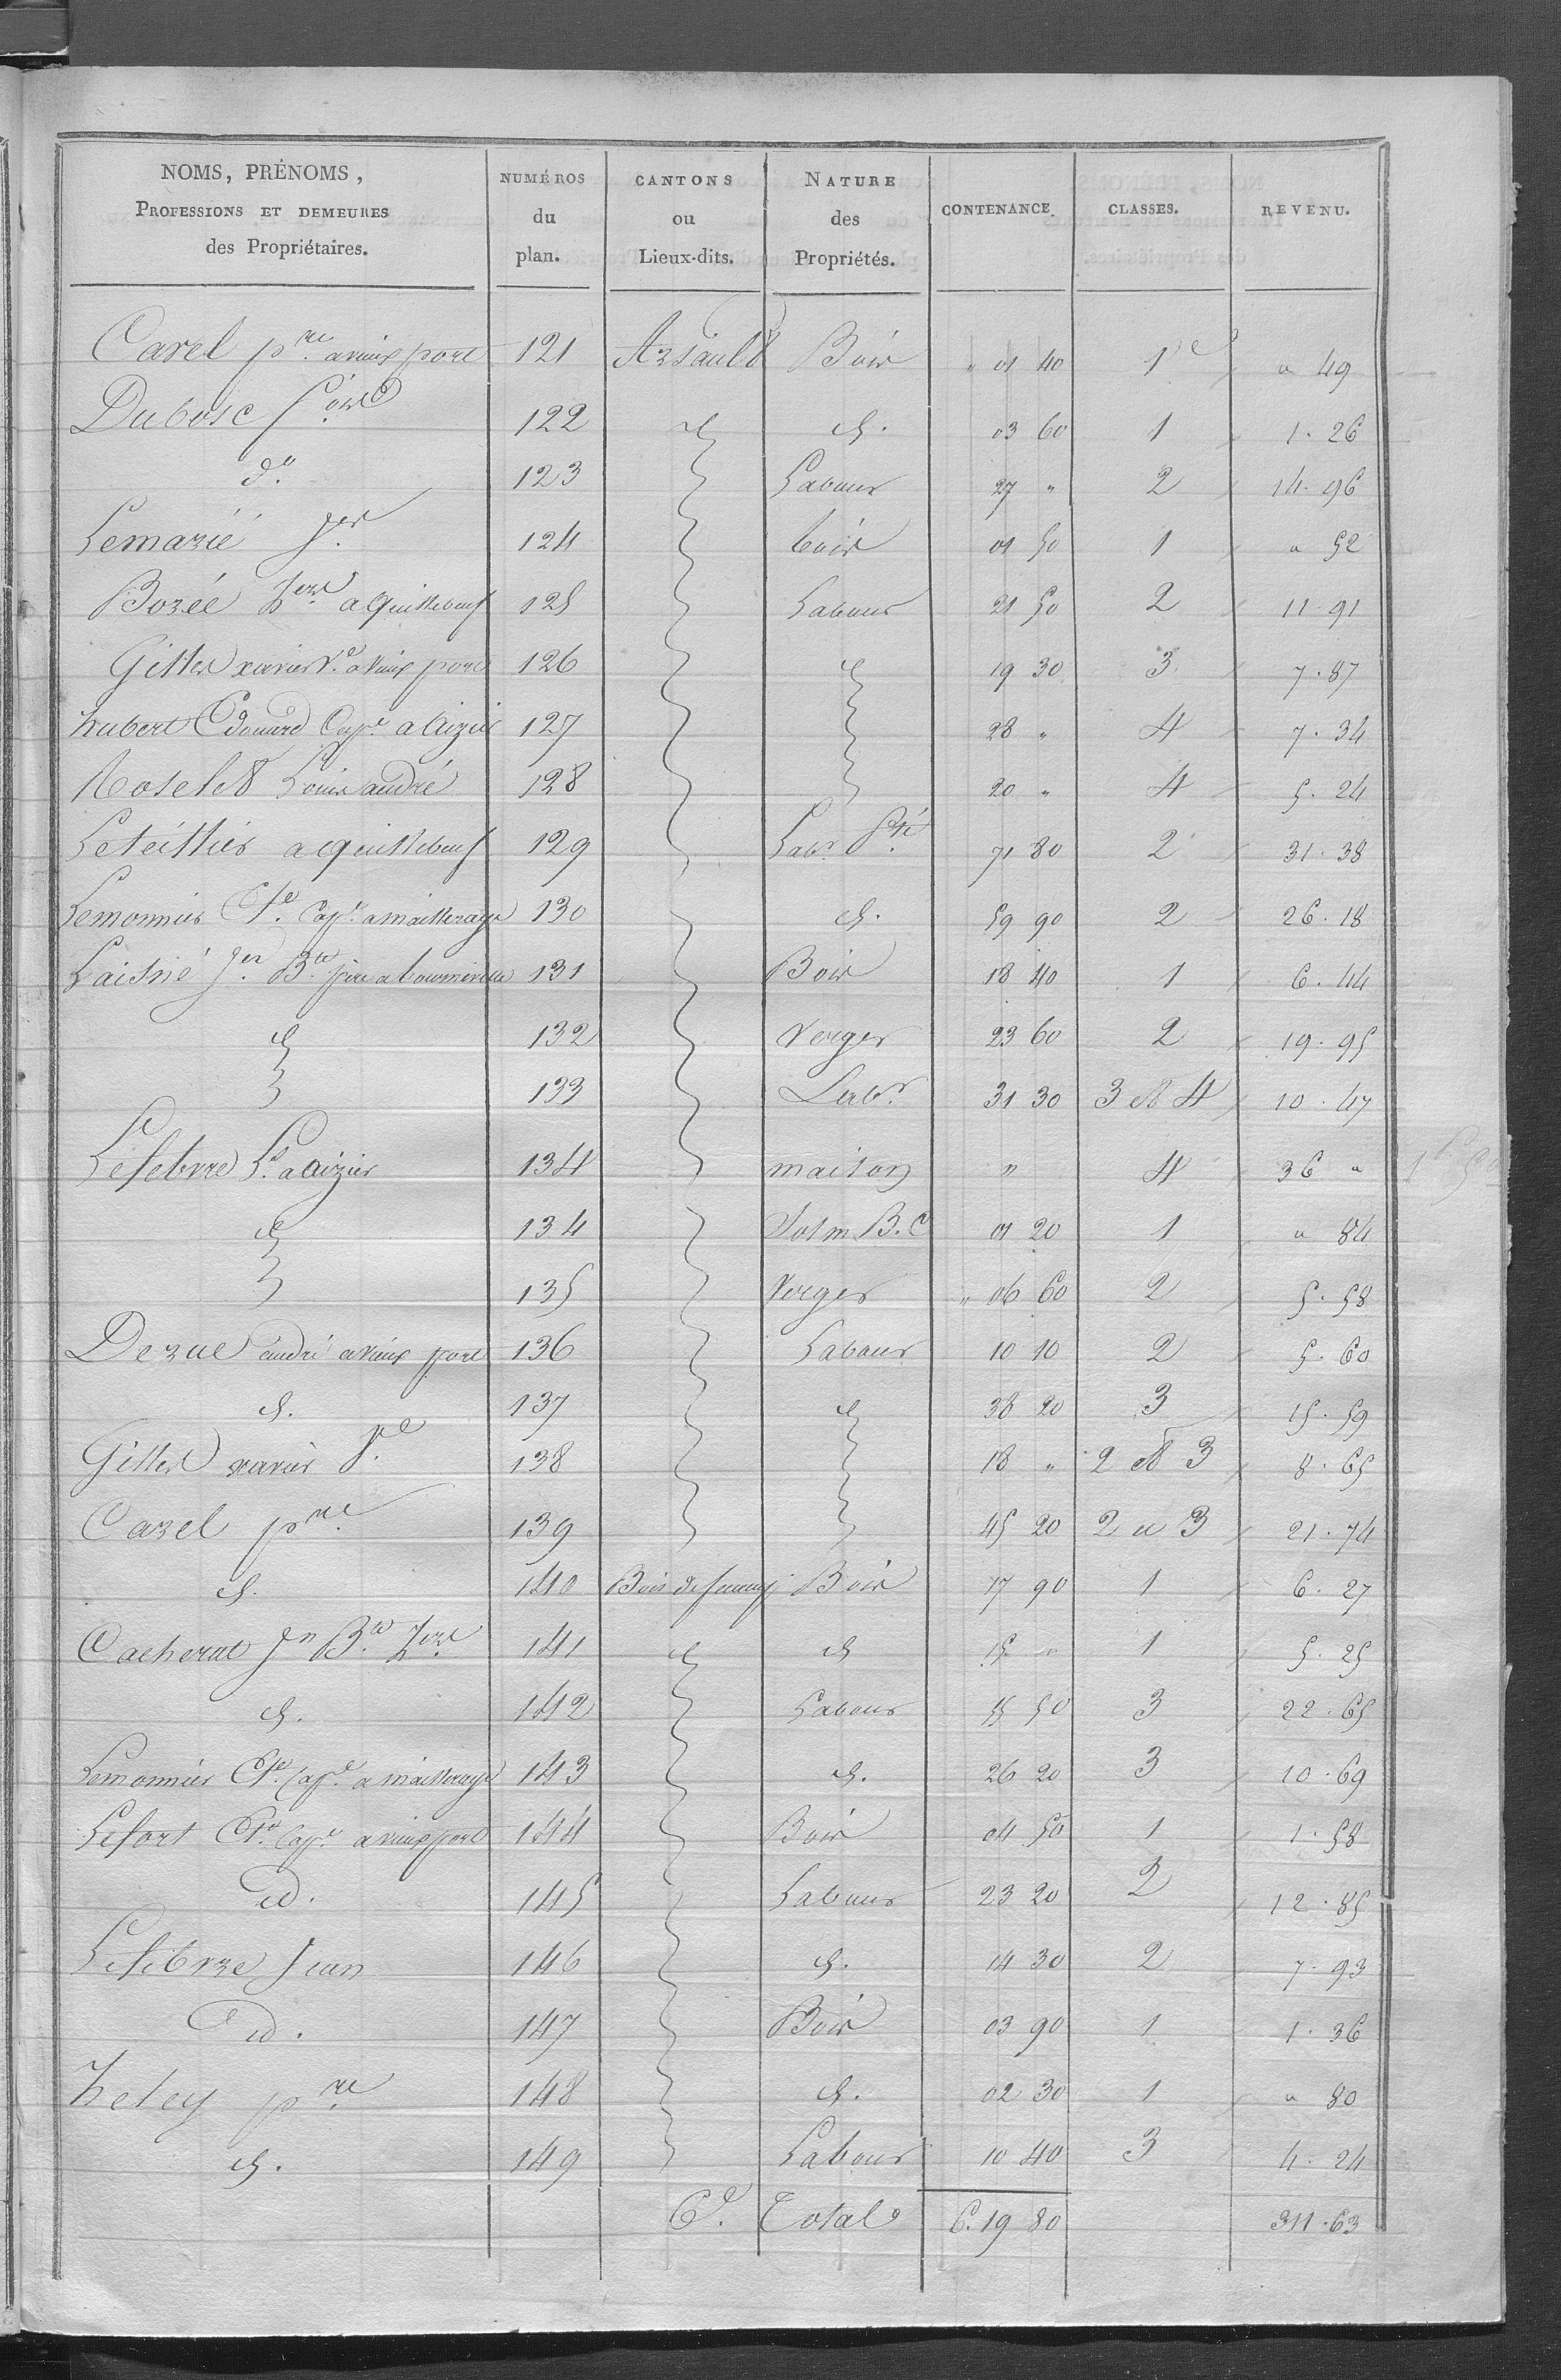 NOMS, PRÉNOMS, PROFESSIONS ET DEMEURES des Propriétaires. | NUMÉROS du plan. | CANTONS ou Lieux-dits. | NATURE des Propriétés. | CONTENANCE. | CLASSES. | REVENU.
Carel pre. a vieux port 121 Bois " 01 40 1re " 49
Dubosc 122 d. 03 60 1 1. 26
do. 123 Labour 27 " 2 14. 96
Lemarié Jer. 124 bois 01 50 1 " 52
Bozée a quillebeuf 125 Labour 21 50 2 11. 91
xavier Ve. a vieux port 126 d 19 30 3 7. 87
hubert Edouard Cape. a aizier 127 28 " 4 7. 34
Louis andré 128 20 " 4 5. 24
Letellier a quillebeuf 129 Labr. 71 80 2 31. 38
Lemonnier Cape. a mailleraye 130 d. 59 90 2 26. 18
Laisné Jn. Bte. père a bourneville 131 Bois 18 40 1 6. 44
d 132 Verger 23 60 2 19. 95
133 Labr. 31 30 3 et 4 10. 47
Lefebvre a aizier 134 maison " 4 36 "
d 134 Sol m. B. C 01 20 1 " 84
135 Verger " 06 60 2 5. 58
Derue andré a vieux port 136 Labour 10 10 2 5. 60
d. 137 d 38 20 3 15. 59
xavier 138 18 " 2 et 3 8. 65
Carel pre. 139 45 20 2 et 3 21. 74
d. 140 Bois 17 90 1 6. 27
Cacherat Jn Bte. 141 d d 15 " 1 5. 25
d. 142 Labour 55 50 3 22. 65
Lemonnier Cape. a mailleraye 143 d. 26 20 3 10. 69
Lefort Cape. a vieux port 144 Bois 04 50 1 1. 58
id. 145 Labour 23 20 2 12. 85
Lefebvre Jean 146 d. 14 30 2 7. 93
id. 147 Bois 03 90 1 1. 36
heley pre. 148 d. 02 30 1 " 80
d. 149 Labour 10 40 3 4. 24
Total 6. 19 80 311. 63